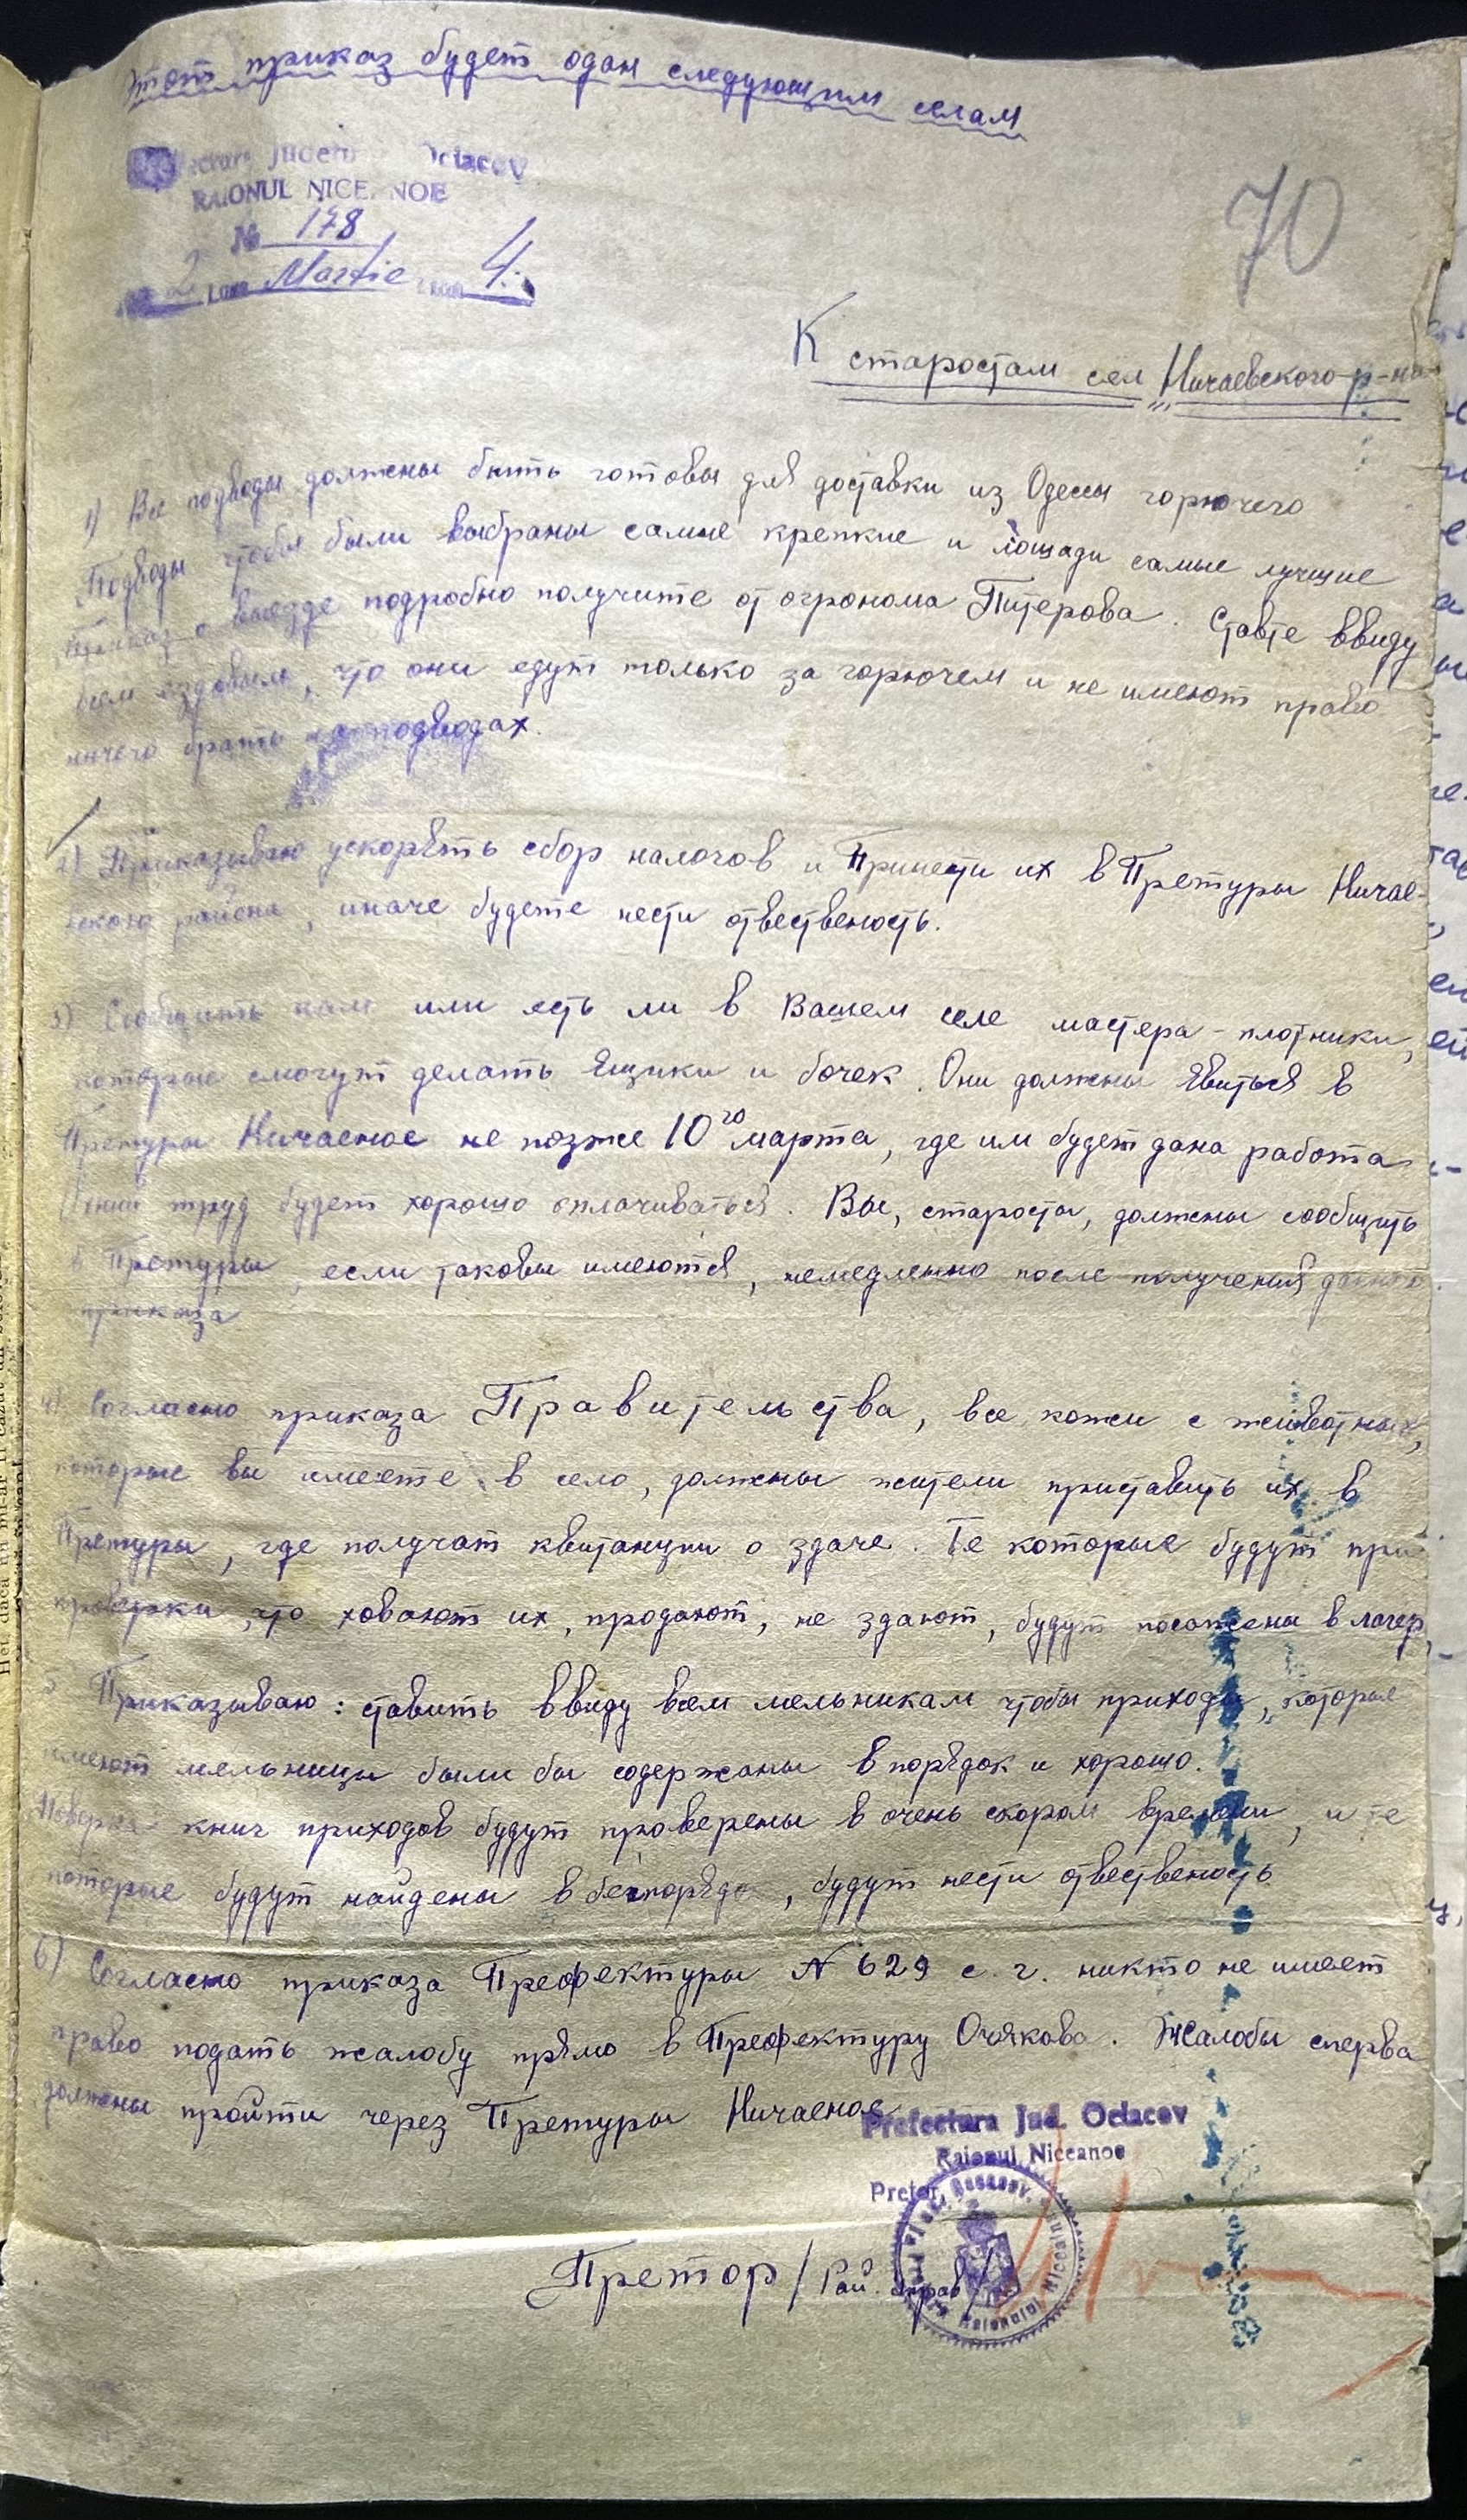 Этот приказ будет одан следующим селам
Județ Octacov
RAIONUL NICE. NOE
№ 178
2 Luna Martie 4
70
К старостам сел Ничаевского р-на
1) Все подводы должены быть готовы для доставки из Одессы горючего
Подводы чтобы были выбраны самые крепкие и лошади самые лучшие
Приказ о выезде подробно получите от огронома Питерова. Ставте ввиду
всем ездовым, что они едут только за горючем и не имеют право
ничего брать на подводах.
2) Приказываю ускорять сбор налогов и Принести их в Претуры Ничае-
вского района, иначе будете нести отвественость.
3) Сообщить нам или есть ли в Вашем селе мастера-плотники,
которые смогут делать ящики и бочек. Они должны явиться в
Претуры Ничаеное не позже 10го марта, где им будет дана работа
Ихний труд будет хорошо оплачиваться. Вы, старосты, должены сообщить
в Претуры, если таковы имеются, немедленно после получения данного
приказа
4) Согласно приказа Правительства, все кожи с животных,
которые вы имеете в село, должены жители приставить их в
Претуры, где получат квитанции о здаче. Те которые будут при
проверки, что ховают их, продают, не здают, будут посажены в лагер
5 Приказываю: ставить ввиду всем мельникам чтобы приходы, которые
имеют мельницы были бы содержаны в порядок и хорошо.
Поверка книг приходов будут проверены в очень скором времени, и те
которые будут найдены в беспорядо, будут нести отвественость
6) Согласно приказа Префектуры N 629 с. г. никто не имеет
право подать жалобу прямо в Префектуру Очякова. Жалобы сперва
должены пройти через Претуры Ничаеное
Prefectura Jud. Octacov
Raionul Niceanoe
Pretor,
Претор / Рай. управ /